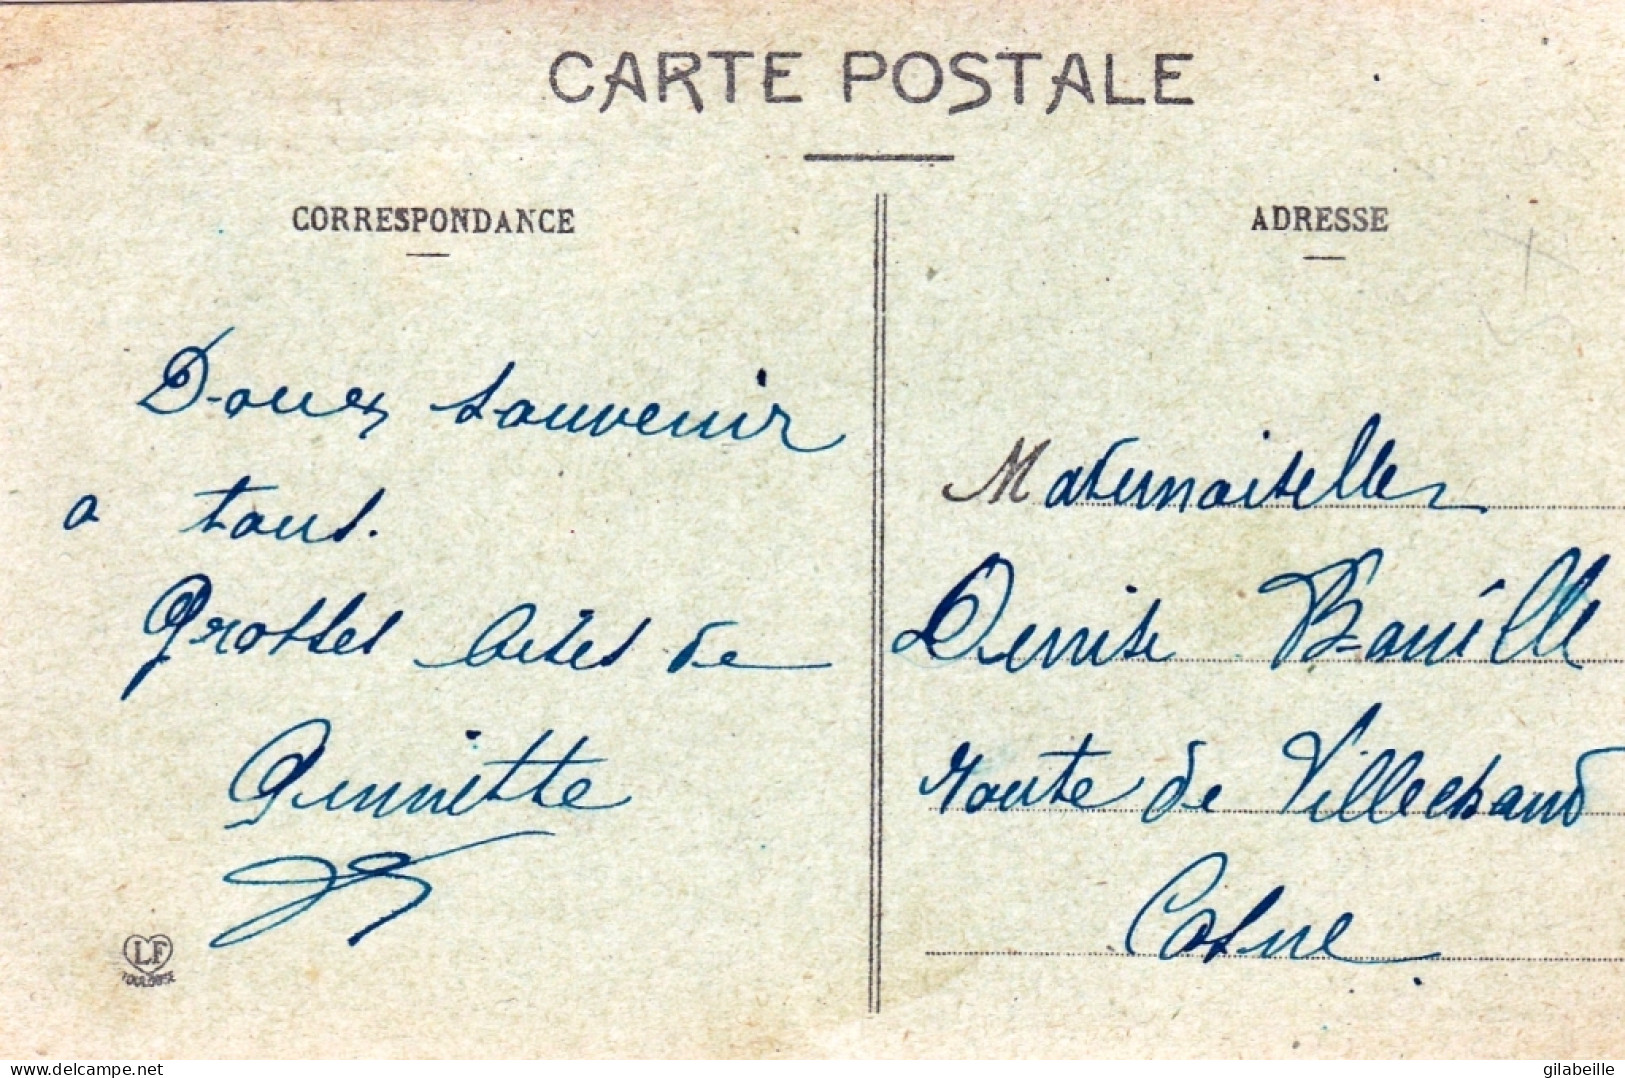 CARTE POSTALE
CORRESPONDANCE
ADRESSE
Doux souvenir
a tous.
Grosses bises de
Ginnette
Mademoiselle
Denise Bouillé
route de Villechaud
Cosne
LF
TOULOUSE
delcampe.net
gilabeille